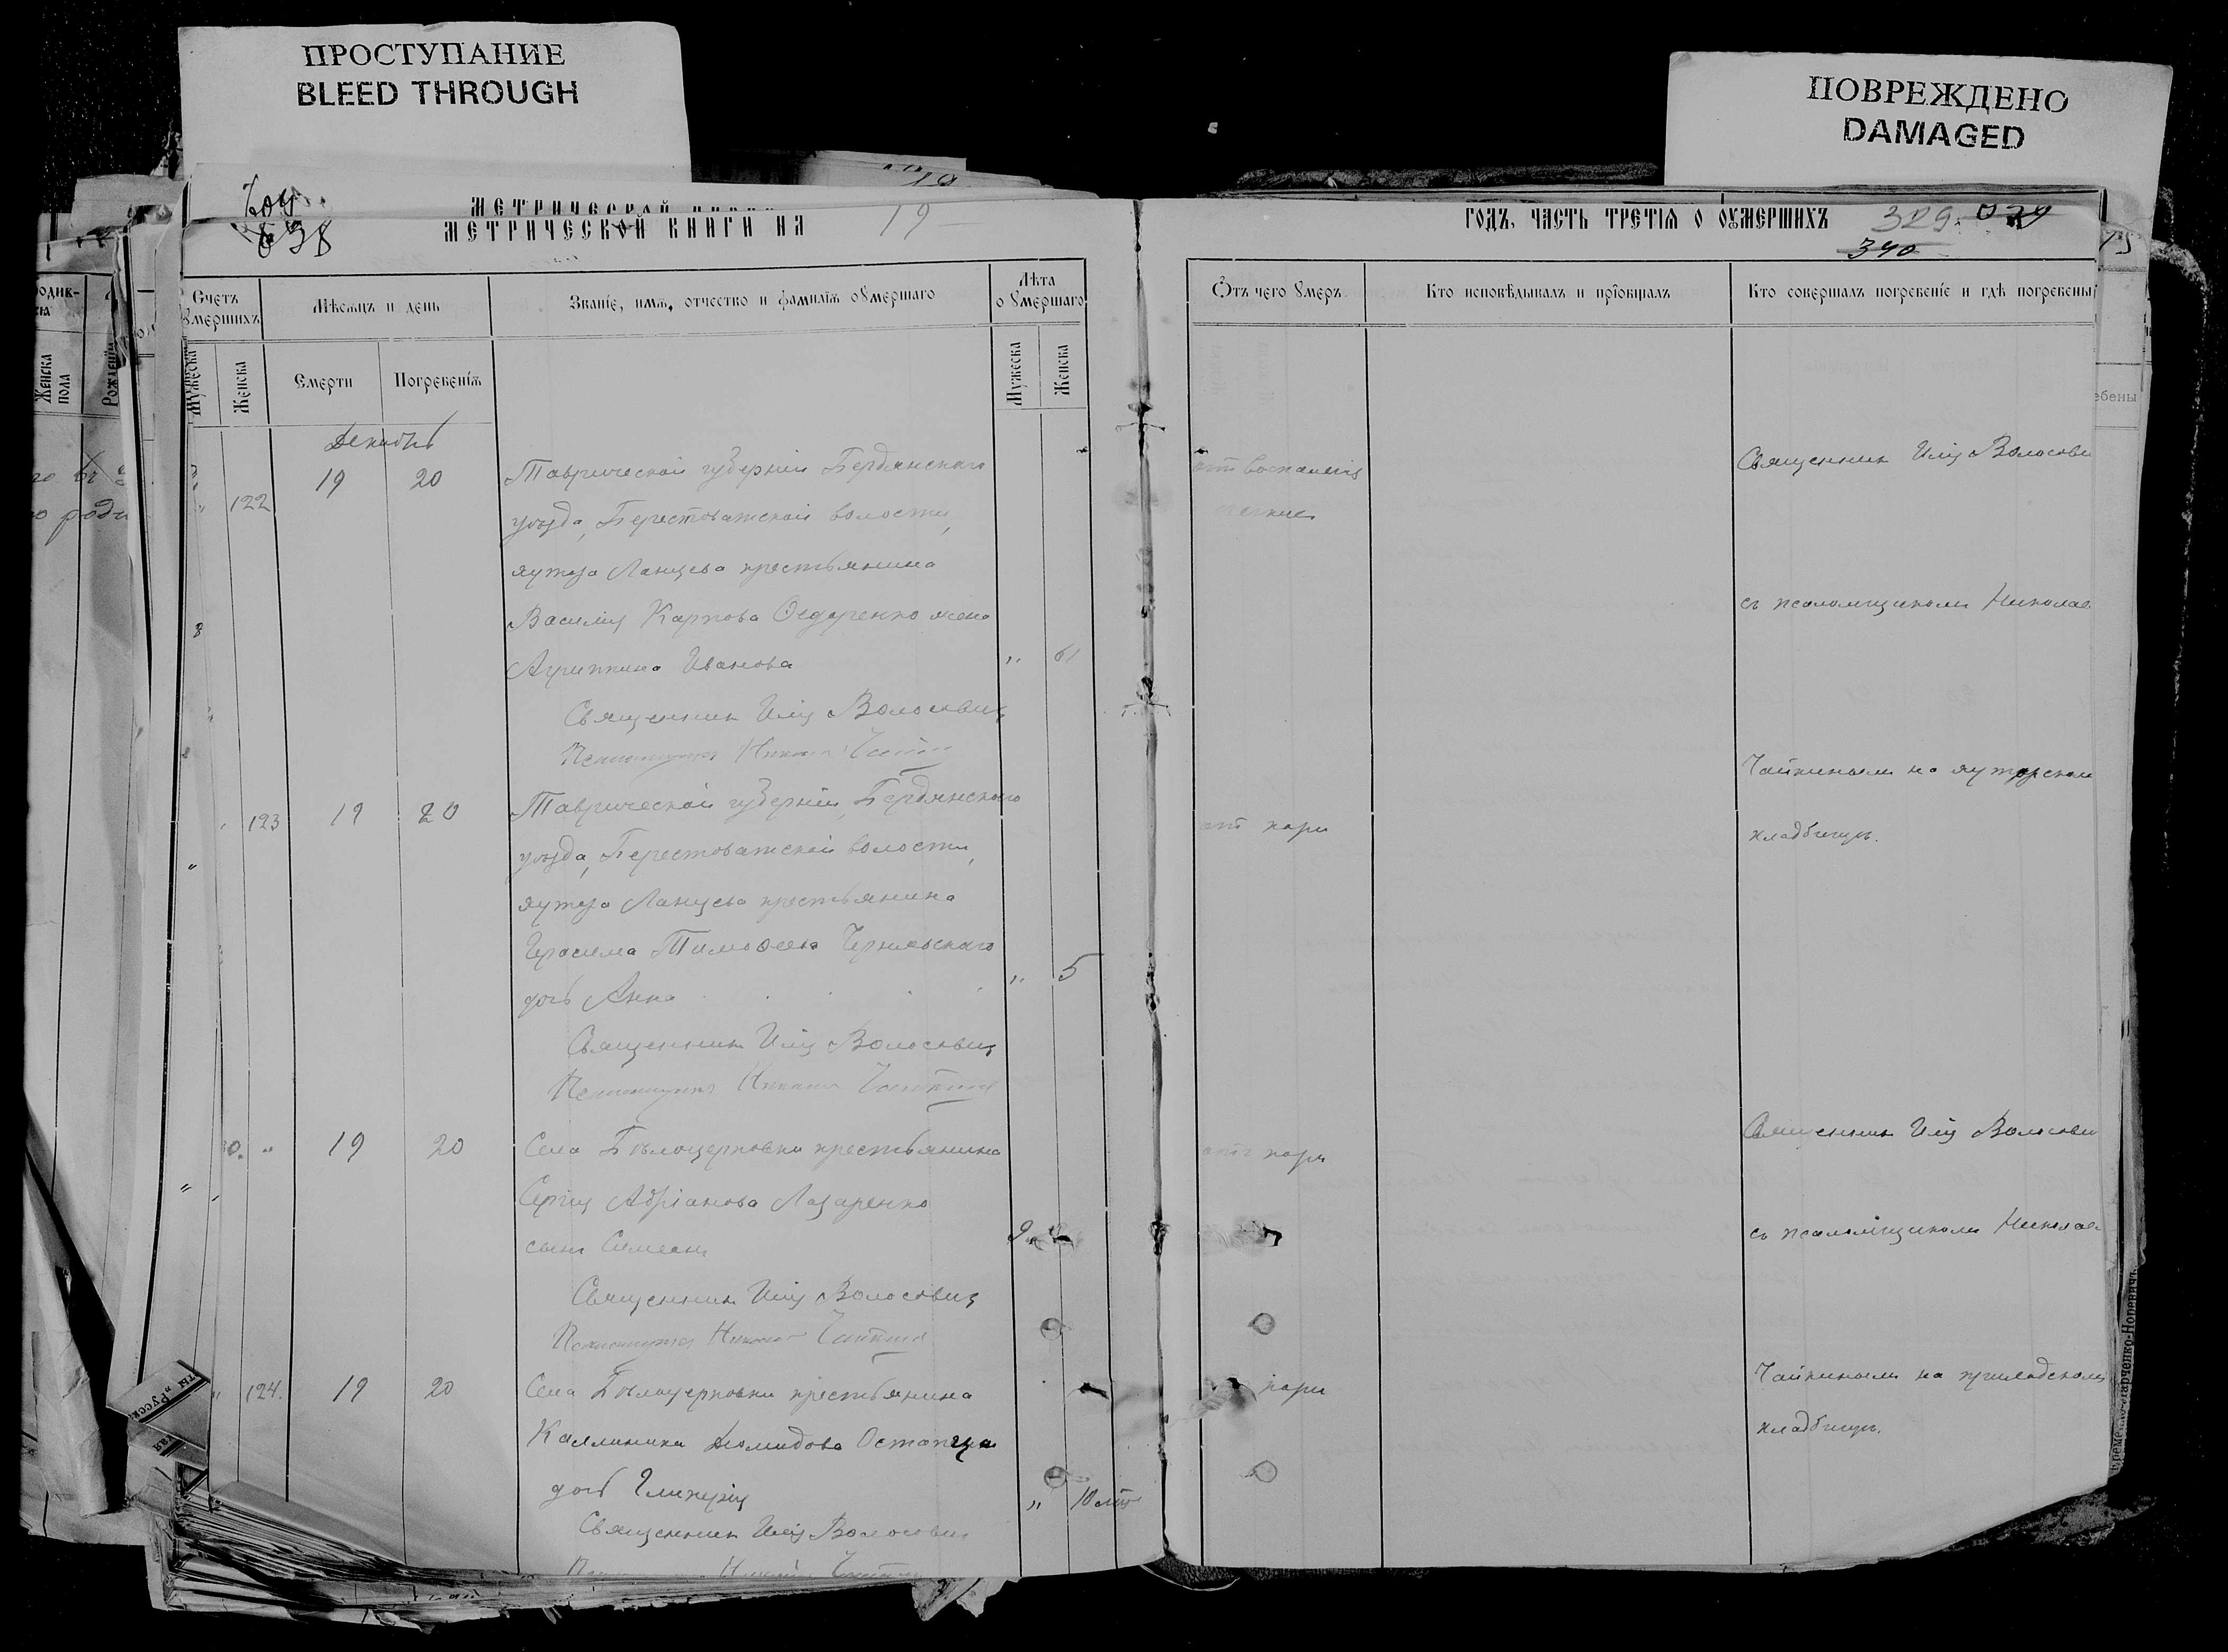 ПРОСТУПАНИЕ
BLEED THROUGH
ПОВРЕЖДЕНО
DAMAGED
МЕТРИЧЕСКОЙ КНИГИ НА 19
ГОДЪ, ЧАСТЬ ТРЕТІЯ О ОУМЕРШИХЪ 329
340
Счетъ умершихъ
Мѣсяцъ и день
Званіе, имя, отчество и фамилія умершаго
Лѣта умершаго
Отъ чего умеръ
Кто исповѣдывалъ и пріобщалъ
Кто совершалъ погребеніе и гдѣ погребены
Мужеска
Женска
Смерти
Погребенія
Мужеска
Женска
Декабрь
122 19 20 Таврической губерніи Бердянскаго
уѣзда, Берестоватской волости,
хутора Ланцева крестьянина
Василія Карпова Ѳедоренко жена
Агриппина Иванова „ 61
Священник Илія Волосевич
Псаломщикъ Николай Чайкинъ
отъ воспаленія
легких
Священник Илія Волосеви
съ псаломщиком Николае
Чайкиным на хуторском
кладбищѣ.
123 19 20 Таврической губерніи, Бердянскаго
уѣзда, Берестоватской волости,
хутора Ланцева крестьянина
Герасима Тимоѳеева Чернявскаго
дочь Анна „ 5
Священник Илія Волосевич
Псаломщикъ Николай Чайкинъ
отъ кори
19 20 Села Бѣлоцерковки крестьянина
Сергія Адріанова Лазаренко
сын Симеон 9
Священник Илія Волосевич
Псаломщикъ Николай Чайкинъ
отъ кори
Священник Илія Волосеви
съ псаломщиком Николае
Чайкиным на приходском
кладбищѣ.
„ 124. 19 20 Села Бѣлоцерковки крестьянина
Каллиника Демидова Остапца
дочь Гликерія „ 10 лѣт
Священник Илія Волосевич
кори
Женска пола